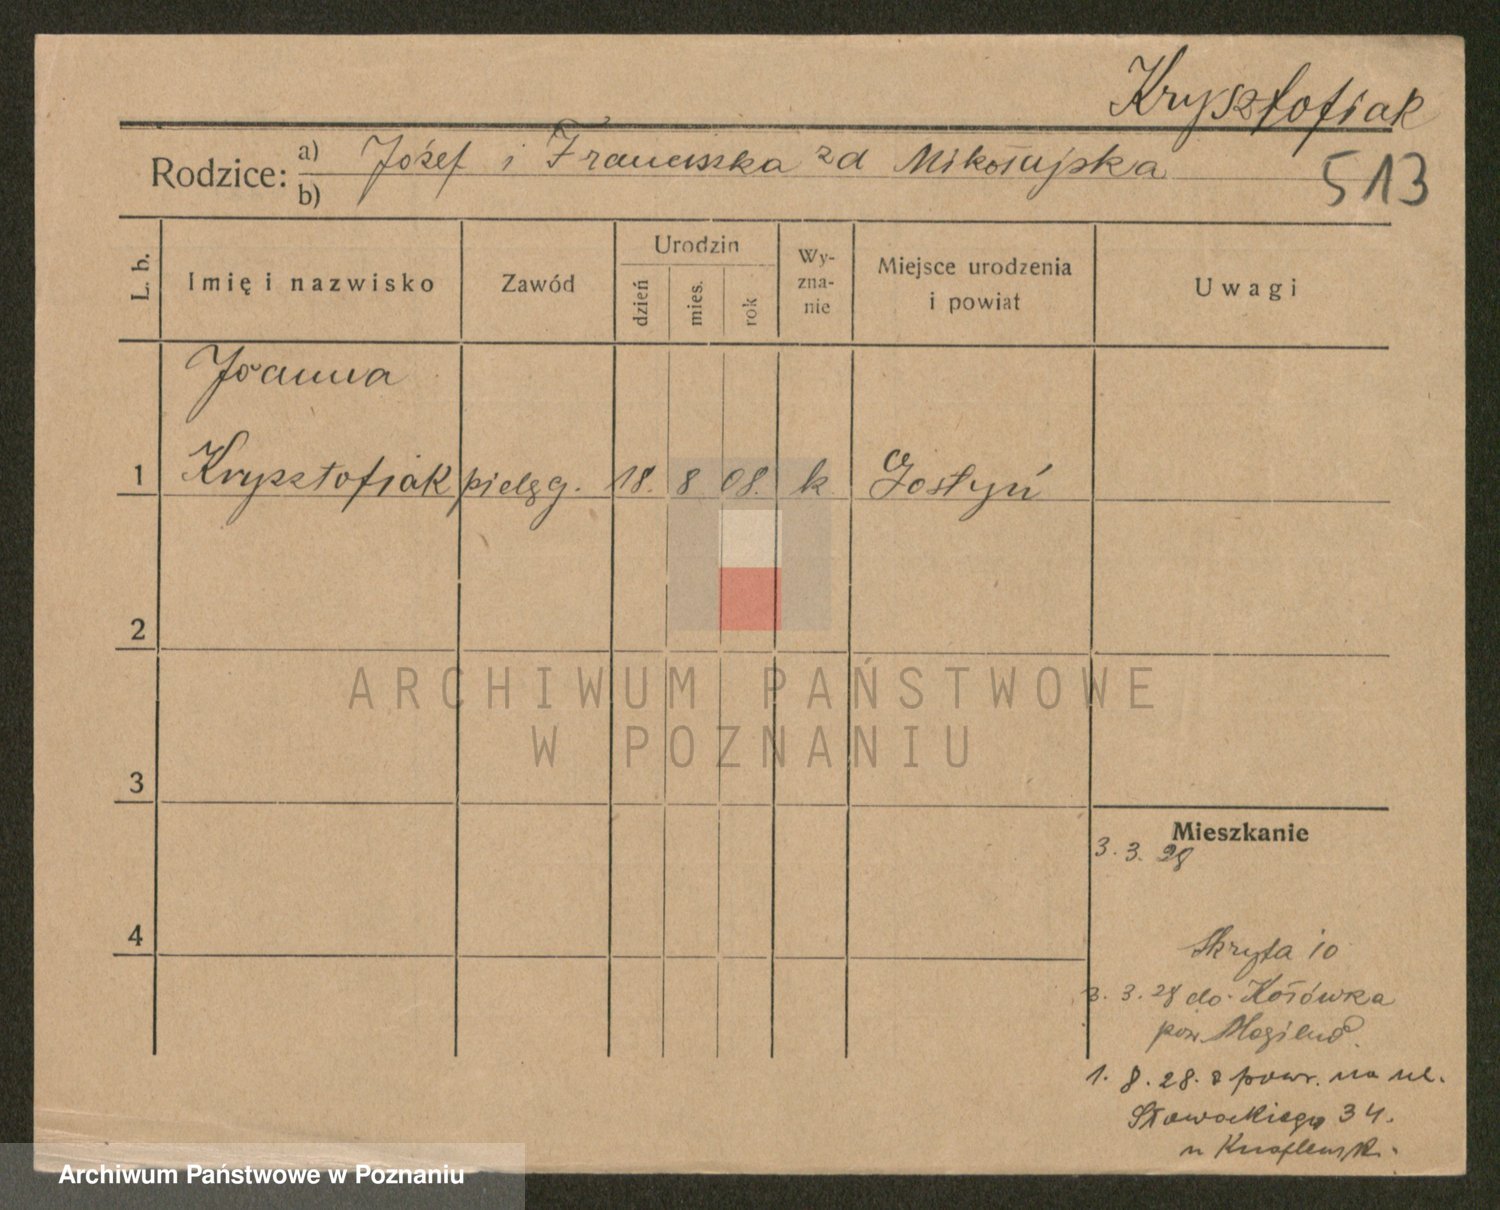 Krysztofiak
513
Rodzice: a) Józef i Franciszka zd Mikołajska
b)
L. b.
Imię i nazwisko
Zawód
Urodzin
dzień
mies.
rok
Wy-
zna-
nie
Miejsce urodzenia
i powiat
Uwagi
Joanna
1 Krysztofiak pielęg. 18. 8 08. k Gostyń
2
3
4
ARCHIWUM PAŃSTWOWE
W POZNANIU
Mieszkanie
3. 3. 28
Skryta 10
3. 3. 28 do Kołówka
pow. Mogilno.
1. 8. 28. z powr. na ul.
Słowackiego 34.
u
Archiwum Państwowe w Poznaniu